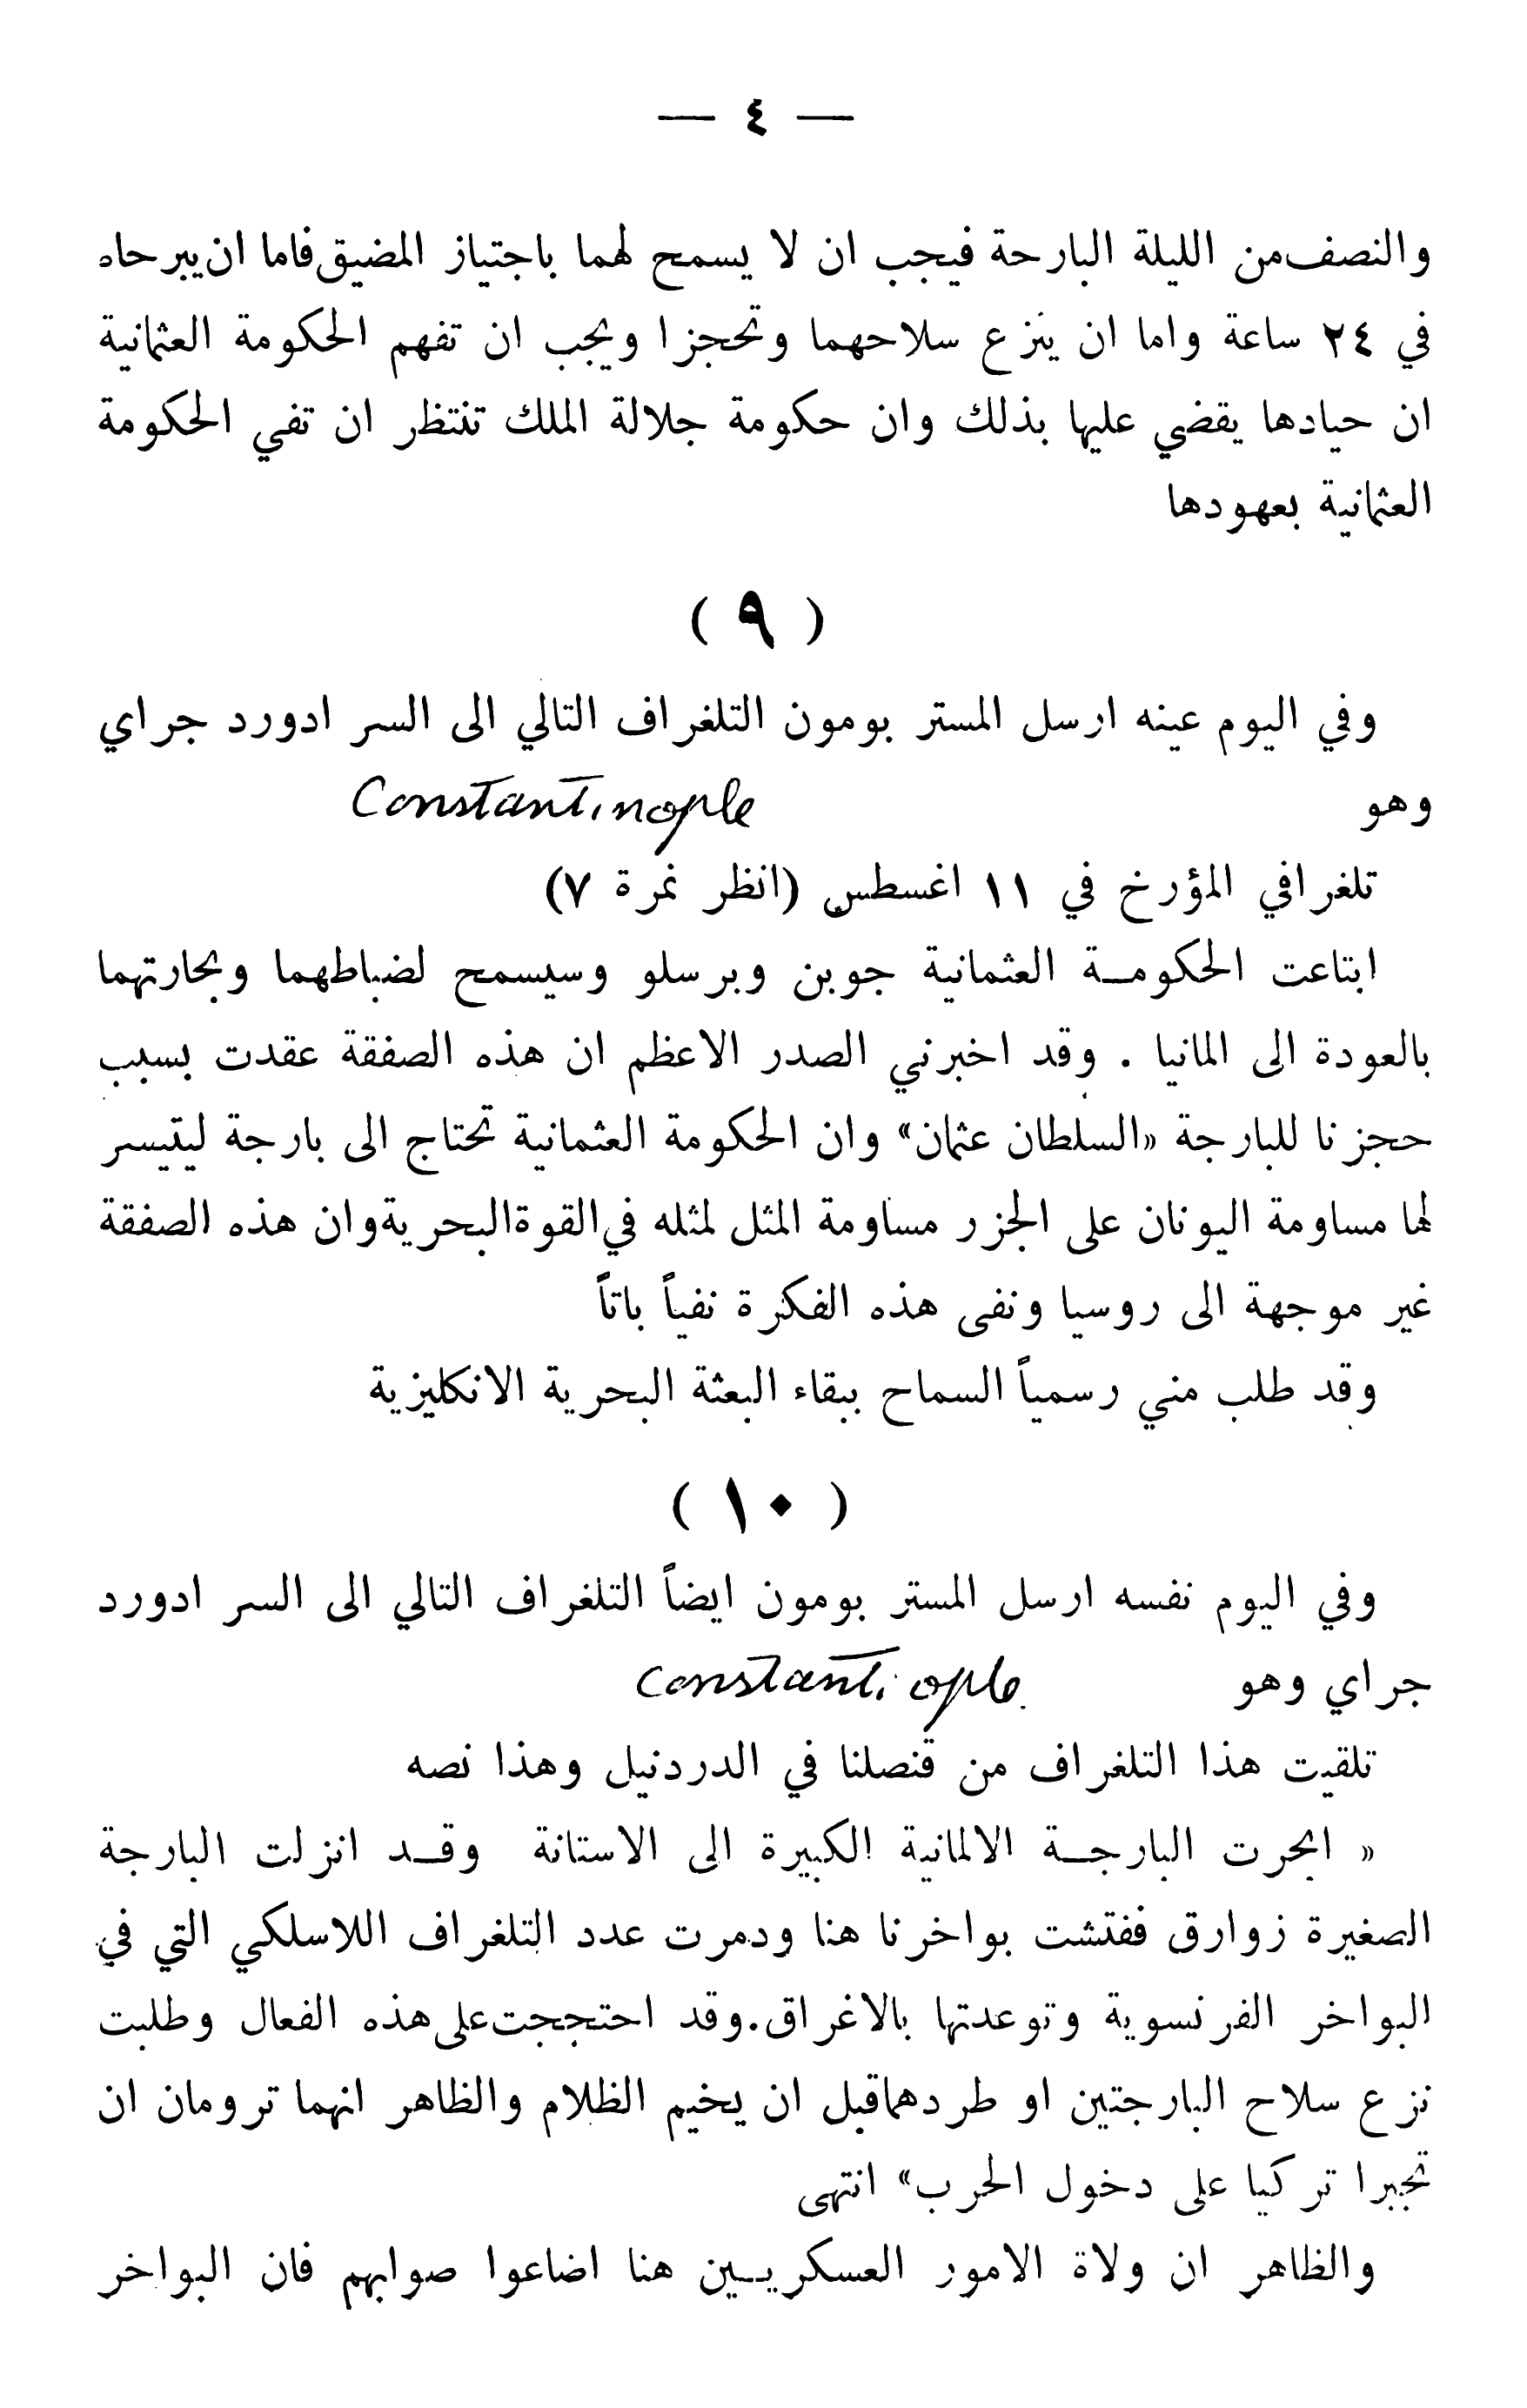 — ٤ —
والنصف من الليلة البارحة فيجب ان لا يسمح لهما باجتياز المضيق فاما ان يبرحاه
في ٢٤ ساعة واما ان ينزع سلاحهما وتحجزا ويجب ان تفهم الحكومة العثمانية
ان حيادها يقضي عليها بذلك وان حكومة جلالة الملك تنتظر ان تفي الحكومة
العثمانية بعهودها
( ٩ )
وفي اليوم عينه ارسل المستر بومون التلغراف التالي الى السر ادورد جراي
وهو Constantinople
تلغرافي المؤرخ في ١١ اغسطس (انظر نمرة ٧)
ابتاعت الحكومة العثمانية جوبن وبرسلو وسيسمح لضباطهما وبحارتهما
بالعودة الى المانيا . وقد اخبرني الصدر الاعظم ان هذه الصفقة عقدت بسبب
حجزنا للبارجة «السلطان عثمان» وان الحكومة العثمانية تحتاج الى بارجة ليتيسر
لها مساومة اليونان على الجزر مساومة المثل لمثله في القوة البحرية وان هذه الصفقة
غير موجهة الى روسيا ونفى هذه الفكرة نفياً باتاً
وقد طلب مني رسمياً السماح ببقاء البعثة البحرية الانكليزية
( ١٠ )
وفي اليوم نفسه ارسل المستر بومون ايضاً التلغراف التالي الى السر ادورد
جراي وهو Constantiople.
تلقيت هذا التلغراف من قنصلنا في الدردنيل وهذا نصه
« ابحرت البارجة الالمانية الكبيرة الى الاستانة وقد انزلت البارجة
الصغيرة زوارق ففتشت بواخرنا هنا ودمرت عدد التلغراف اللاسلكي التي في
البواخر الفرنسوية وتوعدتها بالاغراق. وقد احتججت على هذه الفعال وطلبت
نزع سلاح البارجتين او طردهما قبل ان يخيم الظلام والظاهر انهما ترومان ان
تجبرا تركيا على دخول الحرب» انتهى
والظاهر ان ولاة الامور العسكريين هنا اضاعوا صوابهم فان البواخر